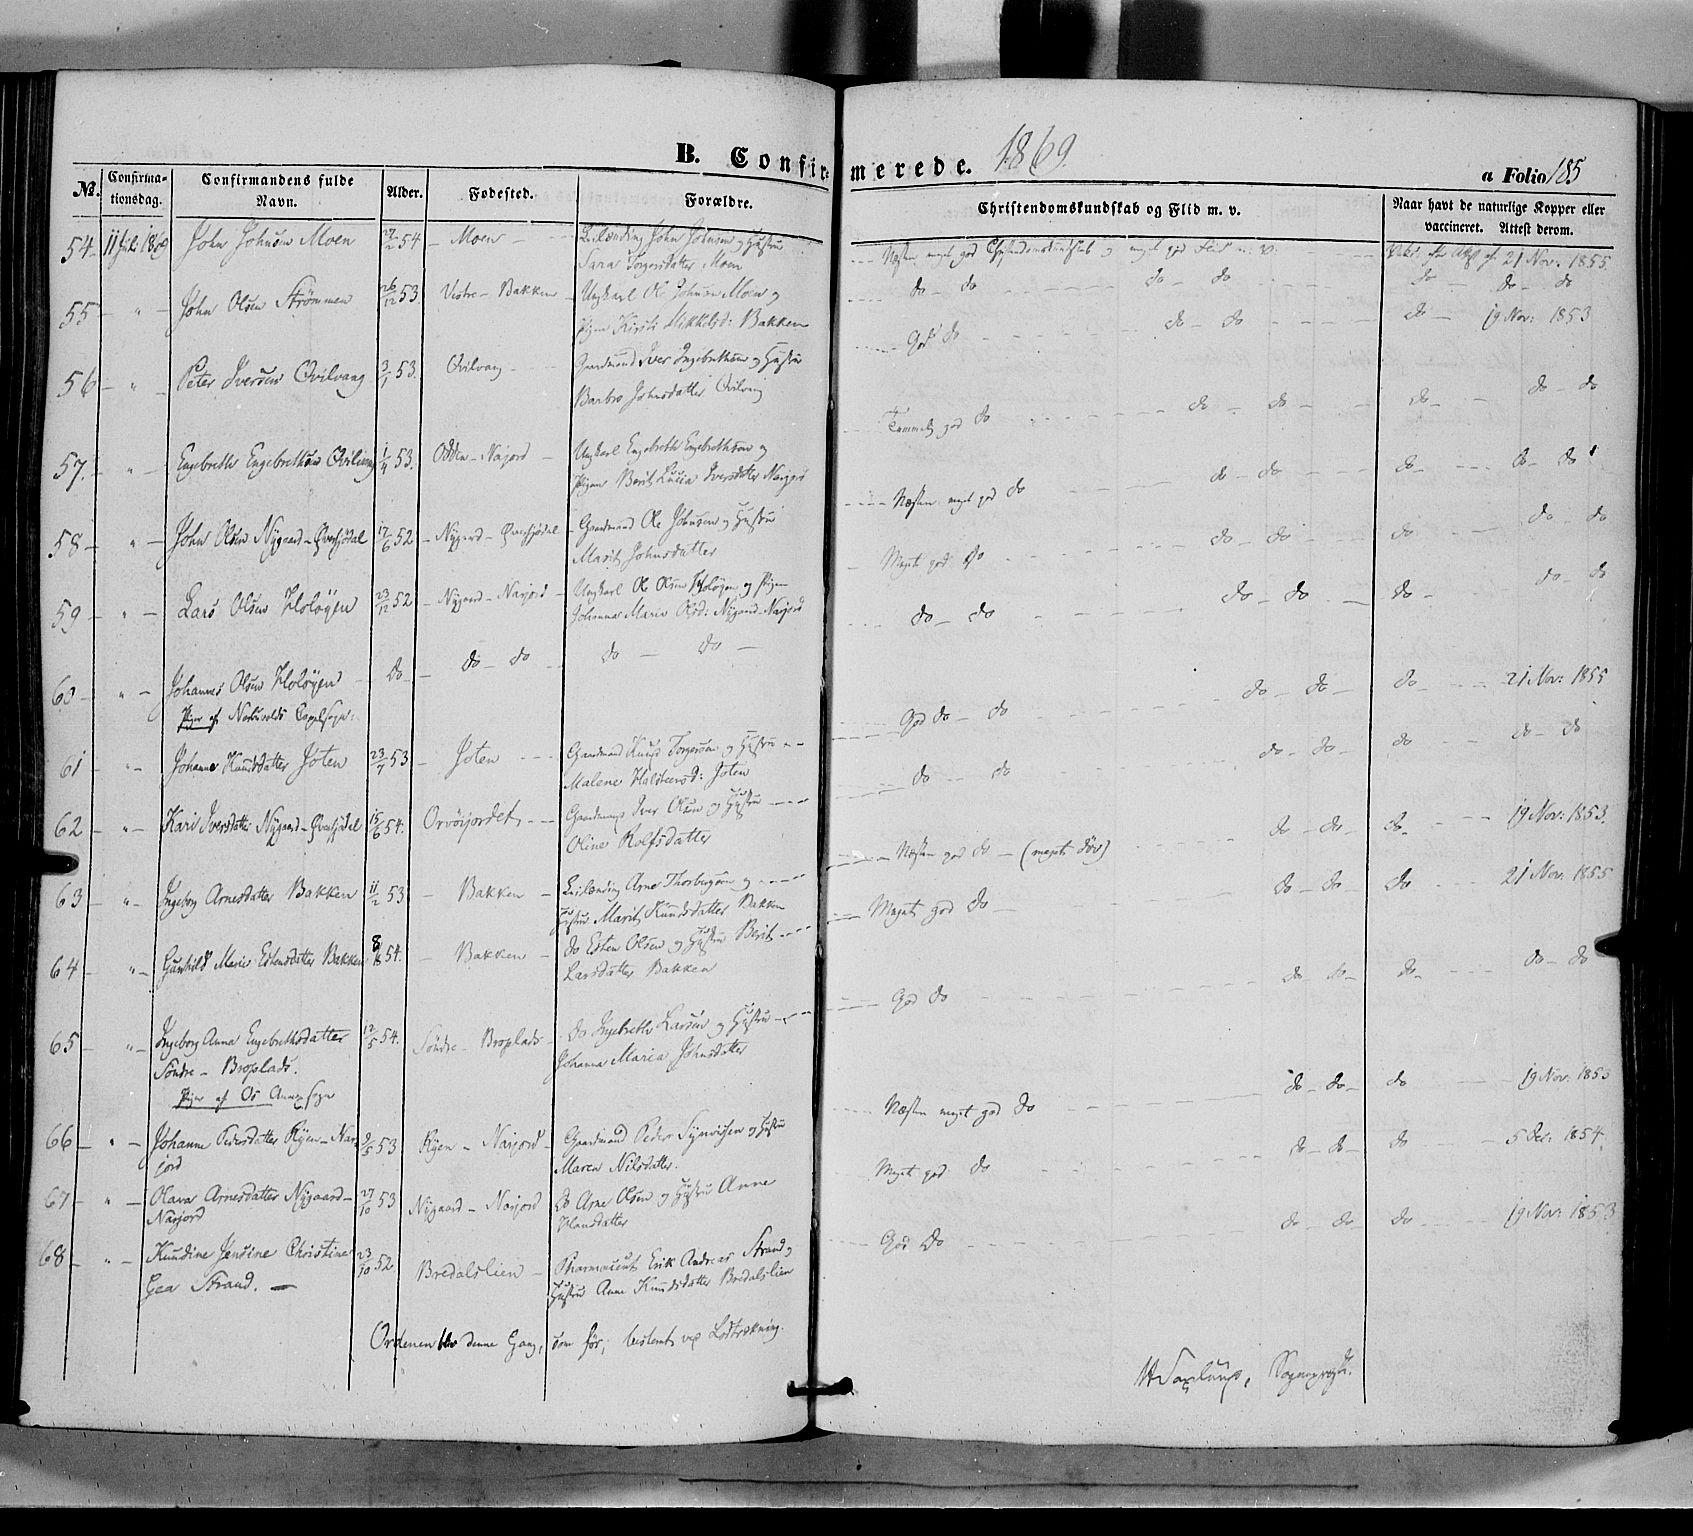 B. Confirmerede. 1869.
a Folio 185
No. Confirmationsdag. Confirmandens fulde Navn. Alder. Fødested. Forældre. Christendomskundskab og Flid m. v. Naar havt de naturlige Kopper eller vaccineret. Attest derom.
54 11 Juli 1869 John Johnsen Moen 54 – Moen – John Johnsen og Hustru
Sara Torgersdatter Moen
Næsten meget god Christendomskundskab og meget god Flid m: v: 21 Nov: 1855.
55 – " – John Olsen Strömmen 26/12 53. Vestre – Bakken – Ungkarl Ole Johnsen Moen og
Pigen Kirsti Mikkelsd: Bakken
do – do do – do do – do – do
56 – " Peter Iversen Qvilvang 3/1 53. Qvilvang Gaardmand Iver Ingebrethsen og Hustru
Barbro Johnsdatter Qvilvang
God do do – do do – 19 Nov: 1853
57. " – Engebreth Engebrethsen Qvilvang 1/4 53. Odden – Narjord – Ungkarl Engebreth Engebrethsen og
Pigen Berit Lucia Iversdatter Narjord
Temmelig god do do – do – do – do – do
58 – " – John Olsen Nygaard – Øversjødal 17/6 52 – Nygaard – Øversjödal – Gaardmand Ole Johnsen og Hustru
Marit Johnsdatter
Næsten meget god do do – do do – do – do
59 " – Lars Olsen Holöyen 23/12 52 – Nygaard – Narjord – Ungkarl Ole Olsen Holöyen og Pigen
Johanna Maria Olsd: Nygaard – Narjord
Meget god do do – do – do – do – do
60 – " – Johannes Olsen Holöyen – do – do – do do – do –
do – do do – do – do – do – do
Piger af
61 – " – Johanne Knudsdatter Joten 23/7 53 – Joten Gaardmand Knud Torgersen og Hustru
Malene Halstensd: Joten
God do – do do – do – do 21 Nov: 1855
62 – " – Kari Iversdatter Nygaard – Øversjødal 15/6 54. Orvöijordet – Iver Olsen og Hustru
Oline Rolfsdatter
do – do do – do – do do – do
63 – " – Ingeborg Arnesdatter Bakken 11/2 53 – Bakken – Arne Thorbergsen og
Hustru Marit Knudsdatter Bakken
Næsten god do – (meget döv) do – do – do – 19 Nov: 1853.
64 – " – Gunhild Marie Estensdatter Bakken 54. – Bakken – do Esten Olsen og Hustru Berit
Larsdatter Bakken
Meget god do – do – do – do 21 Nov: 1855
65 – " – Ingeborg Anna Engebrethsdatter 12/5 54. Söndre – Broplads – do Ingebreth Larsen og Hustru
Söndre – Broplads. Johanna Maria Johnsdatter
God do do do – do – do – do
Piger af Os Annexsogn
66 – " – Johanne Pedersdatter Ryen – Nar- 9/5 53 Ryen – Narjord – Gaardmand Peder Siversen og Hustru
jord Maren Nilsdatter.
Næsten meget god do do – do – do 19 Nov: 1853
67 – " – Olava Arnesdatter Nygaard – 27/10 53 Nygaard – Narjord do Arne Olsen og Hustru Anne
Narjord Hansdatter
Meget god do do – do – do 5 Dec: 1854.
68 – " – Knudine Jensine Christine 23/10 52 Bredalslien – Pharmaceut Erik Andreas Strand og
Gea Strand. – Hustru Anne Knudsdatter Bredalslien
God do do – do – do 19 Nov: 1853
Ordenen blev denne Gang, som för, bestemt ved Lodtrækning.
Sognepræst.